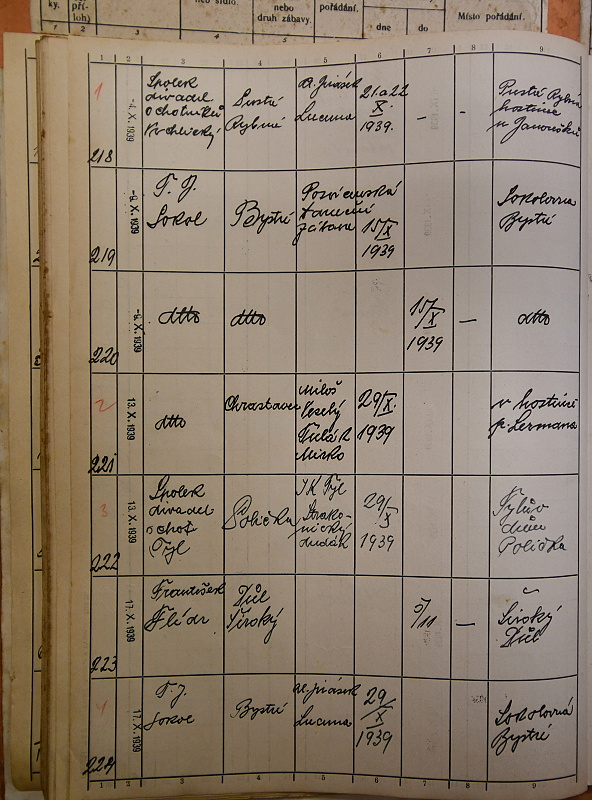 ky.
pří-
loh)
neb sídlo.
nebo
druh zábavy.
pořádání.
dne
do
Místo pořádání.
1 2 3 4 5 6 7 8 9
1
218
-4. X. 1939
Spolek
divadel
ochotníků
Pustá
Rybná
Al. Jirásek
Lucerna
21. a 22
X
1939.
-
-
Pustá Rybná
hostinec
u Janoušků
219
-9. X. 1939
T. J.
Sokol
Bystré
Posvícenská
taneční
zábava
15/X
1939
Sokolovna
Bystré
220
-9. X. 1939
dtto
dtto
15/X
1939
-
dtto
2
221
13. X. 1939
dtto
Chrastavec
Miloš
Veselý
Tulák
Mirko
29/X.
1939
v hostinci
p. Lermana
3
222
13. X. 1939
Spolek
divadel
ochot
Tyl
Polička
J K Tyl
Strako-
nický
dudák
29/X
1939
Tylův
dům
Polička
223
17. X. 1939
František
Flídr
Důl
Široký
5/11
-
Široký
Důl
4
224
17. X. 1939
T. J.
Sokol
Bystré
Al. Jirásek
Lucerna
29/X
1939
Sokolovna
Bystré
1 2 3 4 5 6 7 8 9